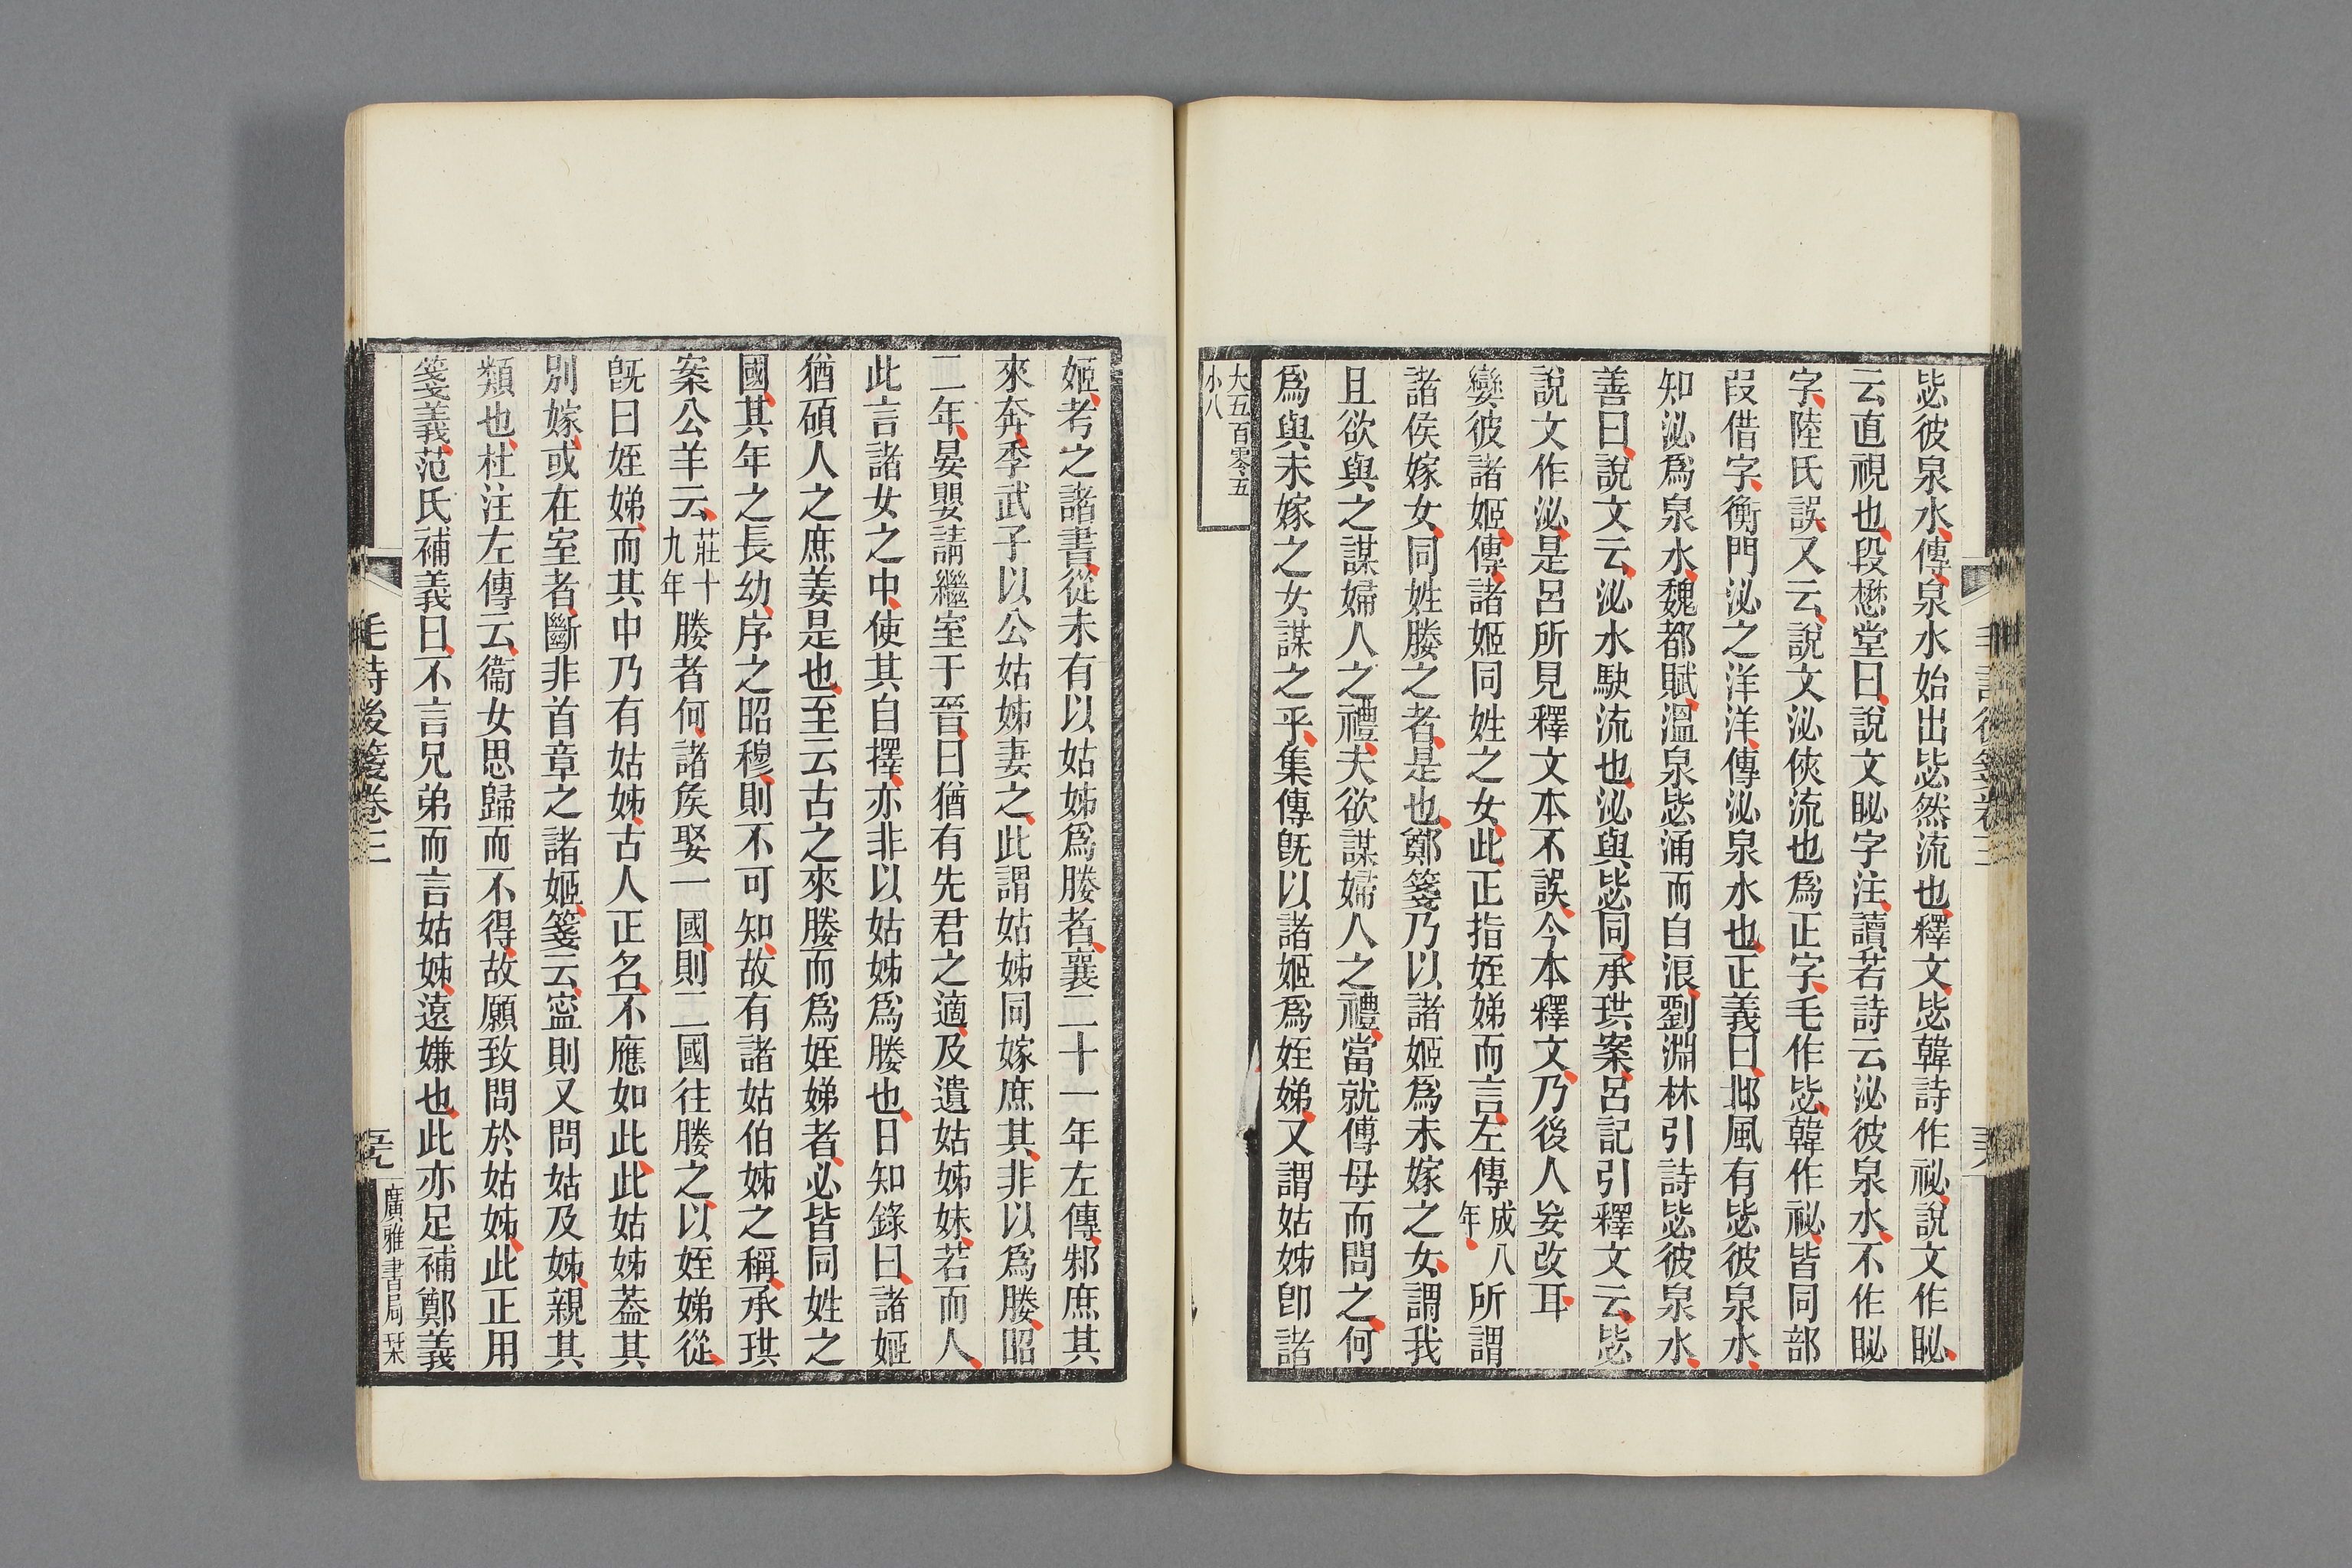 毖彼泉水傳泉水始出毖然流也釋文毖韓詩作祕說文作䀣
云直視也段懋堂曰說文䀣字注讀若詩云泌彼泉水不作䀣
字陸氏誤又云說文泌俠流也爲正字毛作毖韓作祕皆同部
叚借字衡門泌之洋洋傳泌泉水也正義曰邶風有毖彼泉水
知泌爲泉水魏都賦溫泉毖涌而自浪劉淵林引詩毖彼泉水
善曰說文云泌水駛流也泌與毖同承珙案呂記引釋文云毖
說文作泌是呂所見釋文本不誤今本釋文乃後人妄改耳
孌彼諸姬傳諸姬同姓之女此正指姪娣而言左傳成八年所謂
諸侯嫁女同姓媵之者是也鄭箋乃以諸姬爲未嫁之女謂我
且欲與之謀婦人之禮夫欲謀婦人之禮當就傅母而問之何
爲與未嫁之女謀之乎集傳旣以諸姬爲姪娣又謂姑姊卽諸
大五百零五
小八
姬考之諸書從未有以姑姊爲媵者襄二十一年左傳邾庶其
來奔季武子以公姑姊妻之此謂姑姊同嫁庶其非以爲媵昭
二年晏嬰請繼室于晉曰猶有先君之適及遺姑姊妹若而人
此言諸女之中使其自擇亦非以姑姊爲媵也日知錄曰諸姬
猶碩人之庶姜是也至云古之來媵而爲姪娣者必皆同姓之
國其年之長幼序之昭穆則不可知故有諸姑伯姊之稱承珙
案公羊云莊十九年媵者何諸矦娶一國則二國往媵之以姪娣從
旣曰姪娣而其中乃有姑姊古人正名不應如此此姑姊葢其
別嫁或在室者斷非首章之諸姬箋云寍則又問姑及姊親其
類也杜注左傳云衞女思歸而不得故願致問於姑姊此正用
箋義范氏補義曰不言兄弟而言姑姊遠嫌也此亦足補鄭義
毛詩後箋卷三
廣雅書局栞